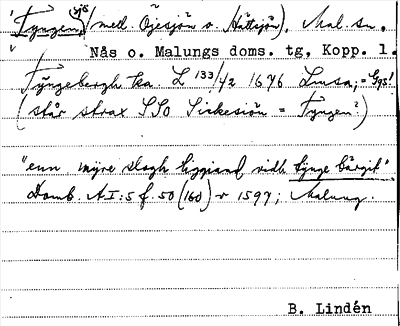 Tyngen, (sjö) (mell. Öjesjön o. Hättsjön), Mal. sn.
Nås o. Malungs doms. tg, Kopp. l.
Tÿngebergh ka L 133/42 1676 Lima, = Ggs!
(står strax SSo Sirkesiön = Tyngen?)
"enn myre slogh liggiand vidh tynge bärgit"
Domb. A I:5 f. 50 (160) v 1597; Malung.
B. Lindén